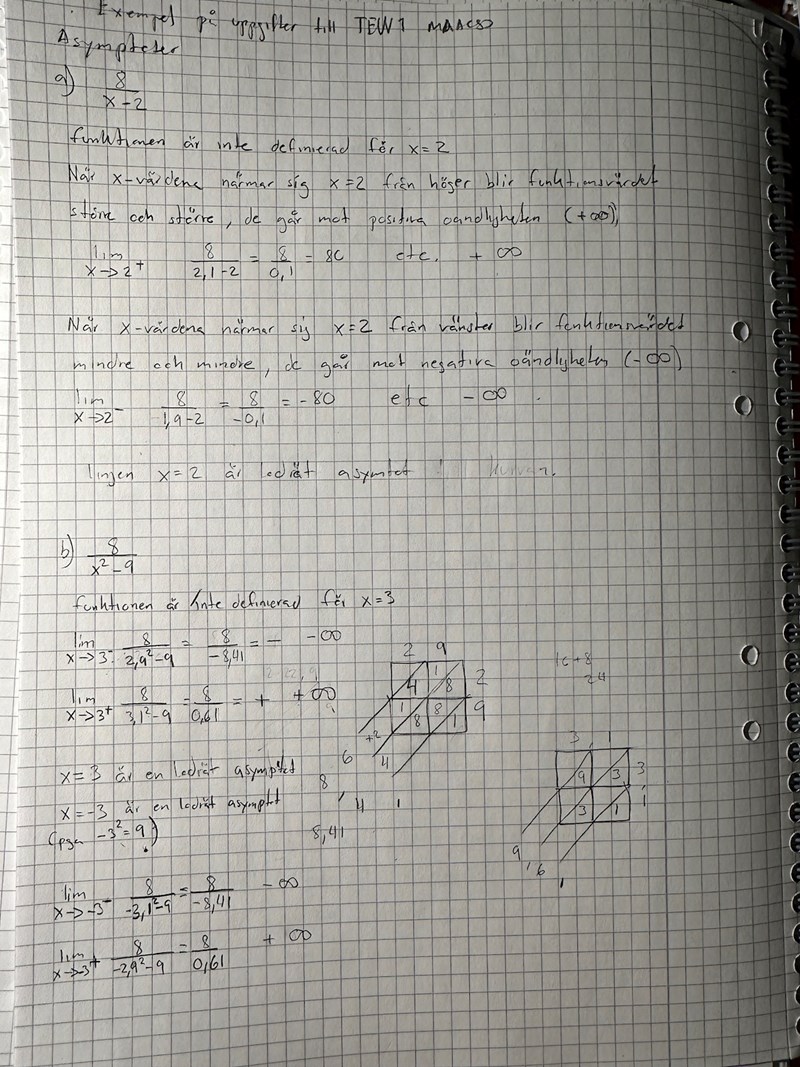 Exempel på uppgifter till TEW 1 MAAC
Asymptoter
a) 8/(x-2)
funktionen är inte definierad för x=2
När x-värdena närmar sig x=2 från höger blir funktionsvärdet
större och större, de går mot positiva oändligheten (+∞),
lim x→2⁺ 8/(2,1-2) = 8/0,1 = 80 etc. + ∞
När x-värdena närmar sig x=2 från vänster blir funktionsvärdet
mindre och mindre, de går mot negativa oändligheten (-∞)
lim x→2⁻ 8/(1,9-2) = 8/-0,1 = -80 etc -∞
linjen x=2 är lodrät asymtot
b) 8/(x²-9)
funktionen är inte definierad för x=3
lim x→3⁻ 8/(2,9²-9) = 8/-8,41 = - -∞
lim x→3⁺ 8/(3,1²-9) = 8/0,61 = + +∞
x=3 är en lodrät asymptot
x=-3 är en lodrät asymptot
(pga -3²=9)
lim x→-3⁻ 8/(-3,1²-9) = 8/-8,41 -∞
lim x→-3⁺ 8/(-2,9²-9) = 8/0,61 + ∞
2 9
4 1 8 2
1 8 8 1 9
+2
6 4
8 , 4 1
8,41
24
3 1
9 3 3
3 1 1
9 , 6 1